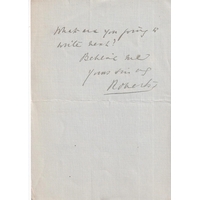 What are you going to
write next?
Believe me
Yours sin
Roberts